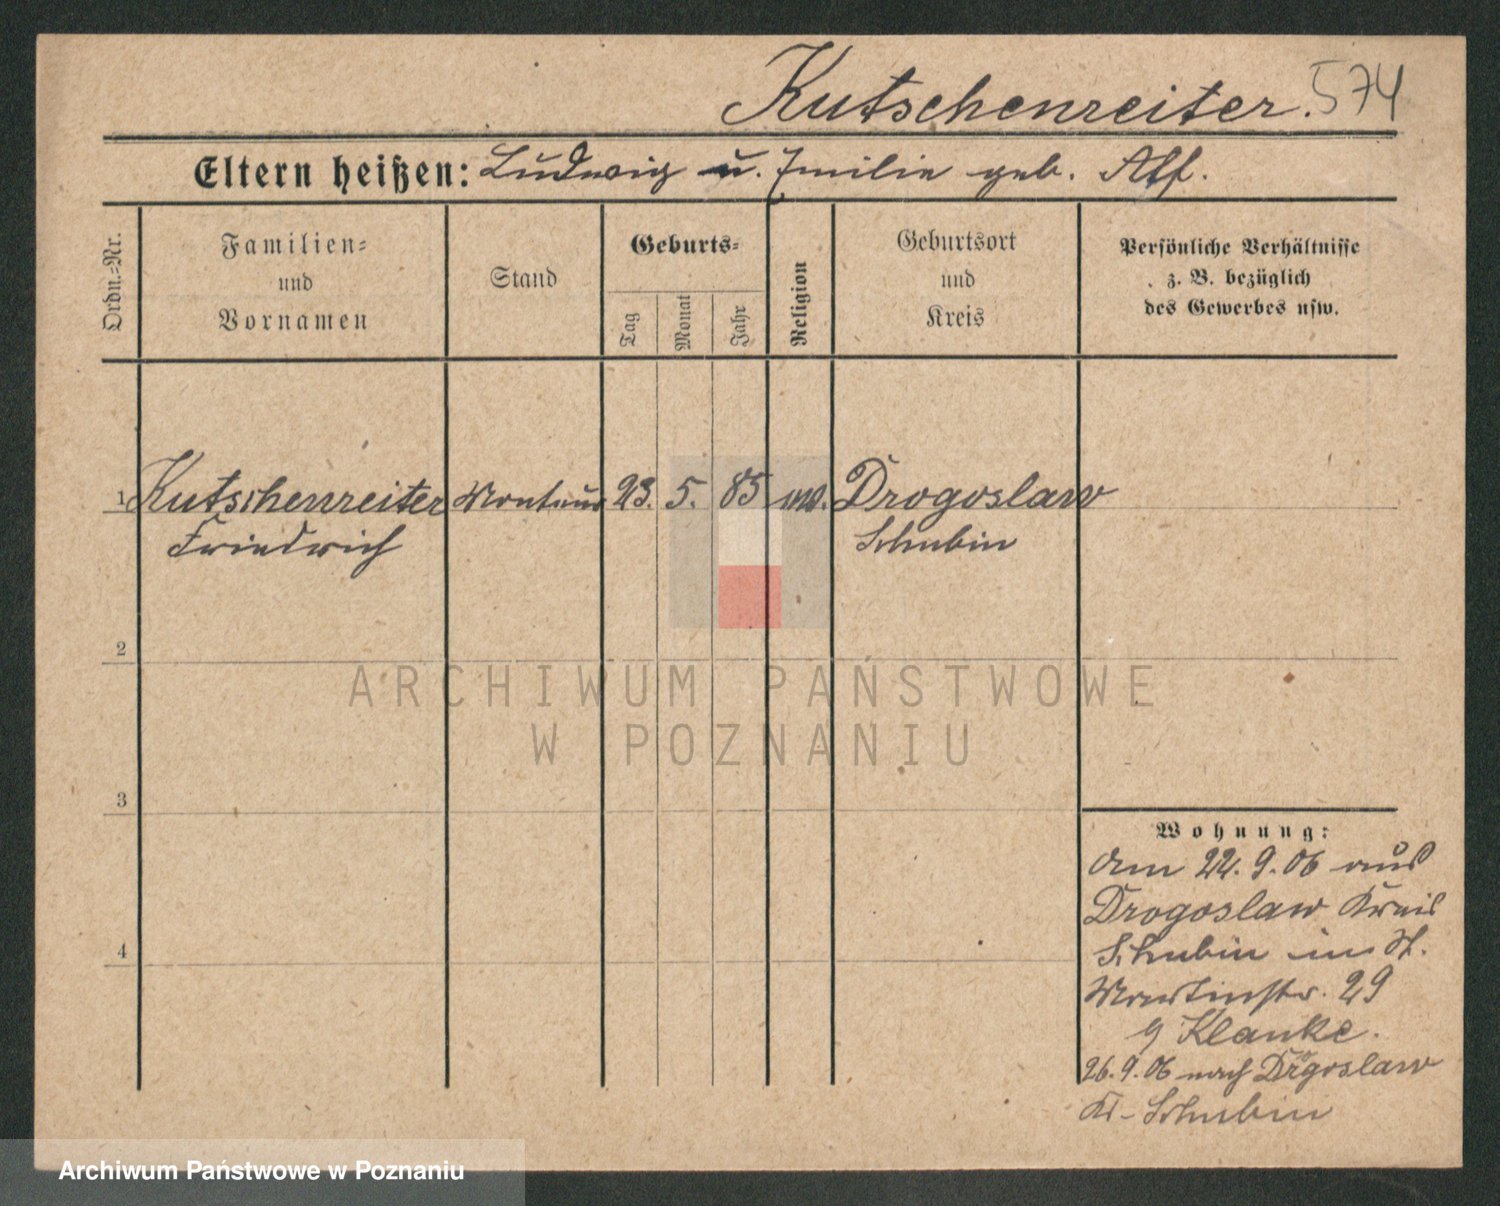 Kutschenreiter. 574
Eltern heißen: Ludwig u. Emilie geb. Alf.
Ordn.-Nr.
Familien-
und
Vornamen
Stand
Geburts-
Tag
Monat
Jahr
Religion
Geburtsort
und
Kreis
Persönliche Verhältnisse
z. B. bezüglich
des Gewerbes usw.
1 Kutschenreiter Monteur 23. 5. 85 Drogoslaw
Friedrich Schubin
2
3
4
ARCHIWUM PAŃSTWOWE
W POZNANIU
Wohnung:
Am 22. 9. 06 aus
Drogoslaw Kreis
Schubin in St.
Martinstr. 29
Klanke.
26. 9. 06 nach Drogoslaw
Kr. Schubin
Archiwum Państwowe w Poznaniu